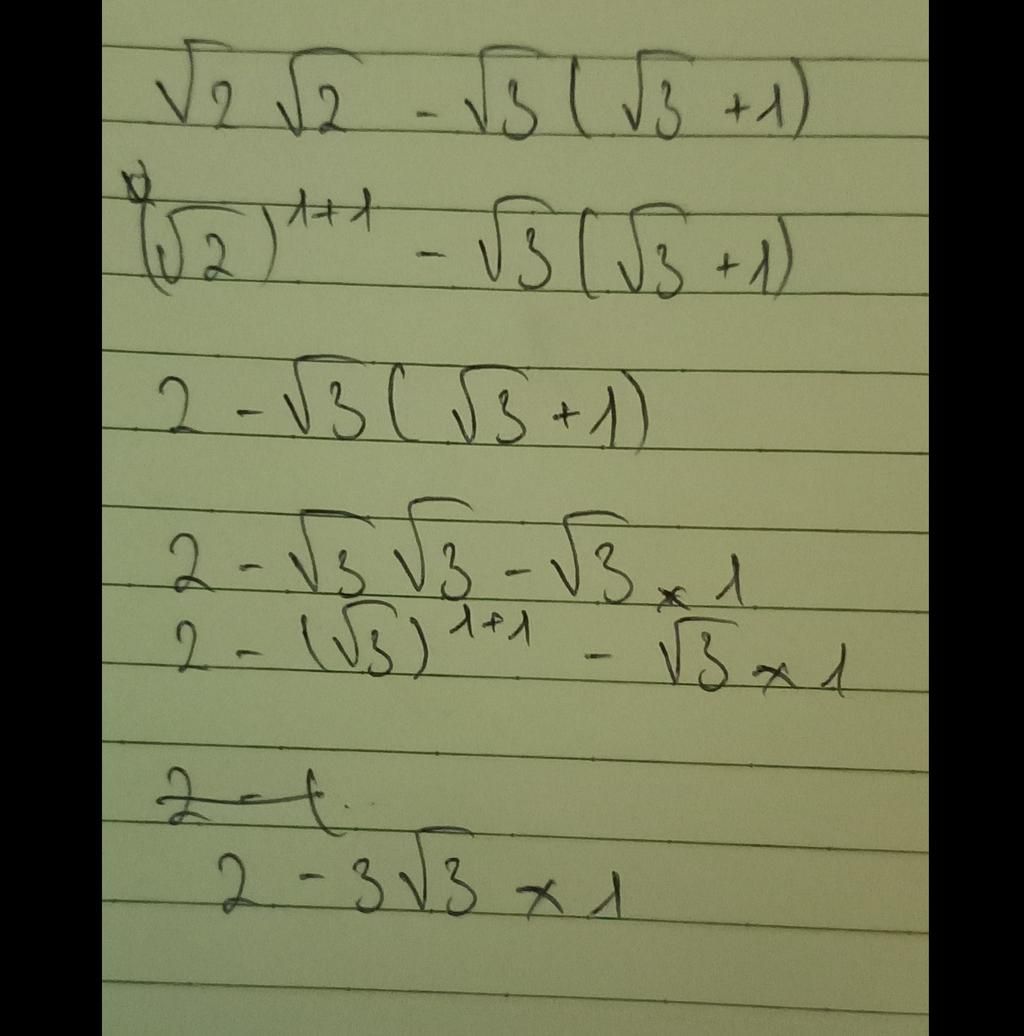 √2 √2 - √3 ( √3 + 1)
(√2)^{1+1} - √3 ( √3 + 1)
2 - √3 ( √3 + 1)
2 - √3 √3 - √3 × 1
2 - (√3)^{1+1} - √3 × 1
2 - (
2 - 3√3 × 1